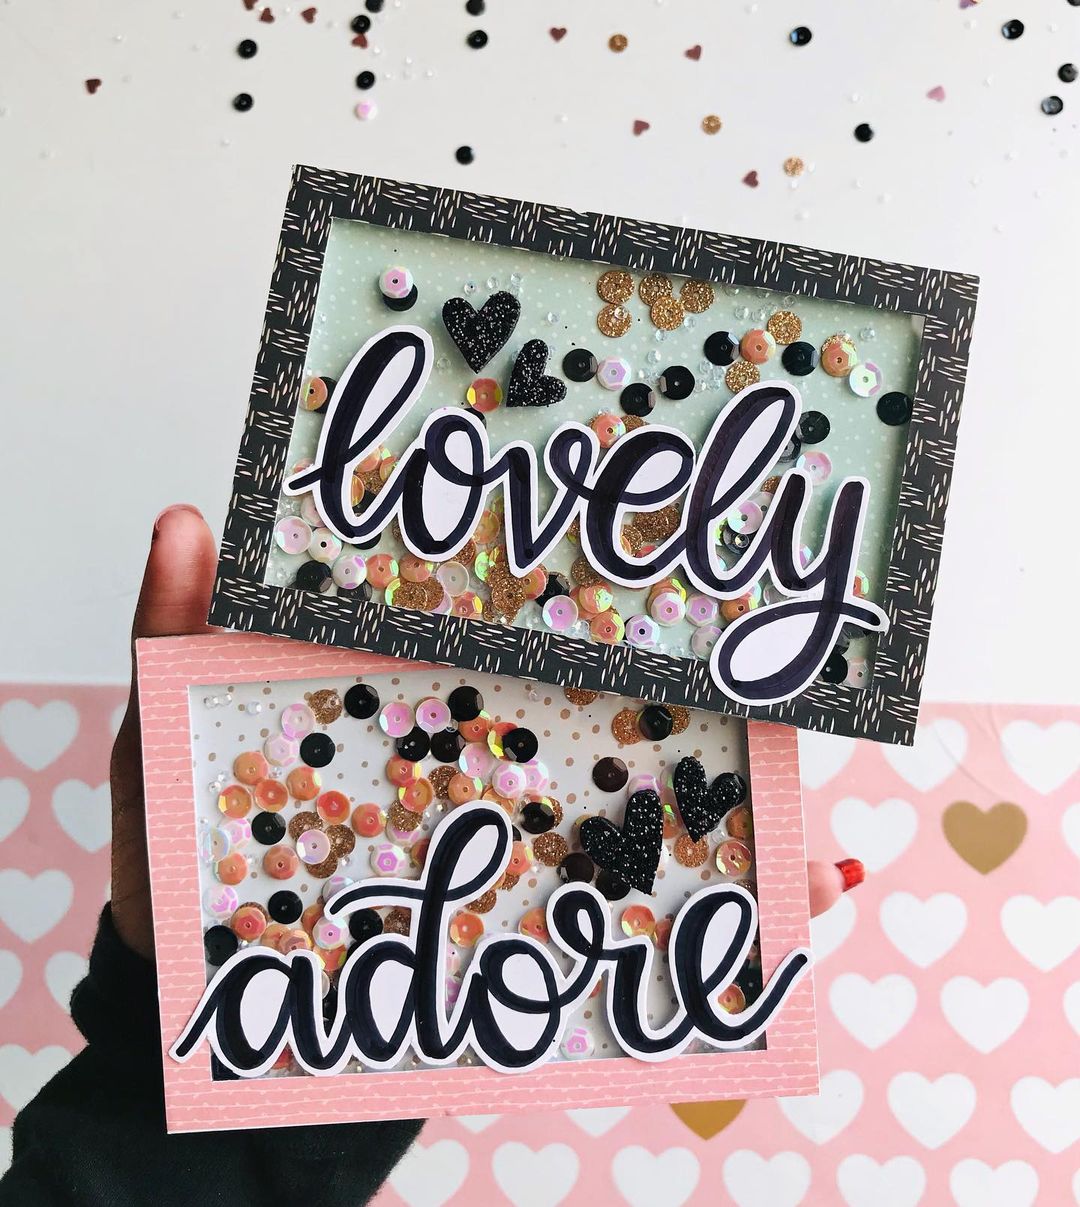 lovely
adore